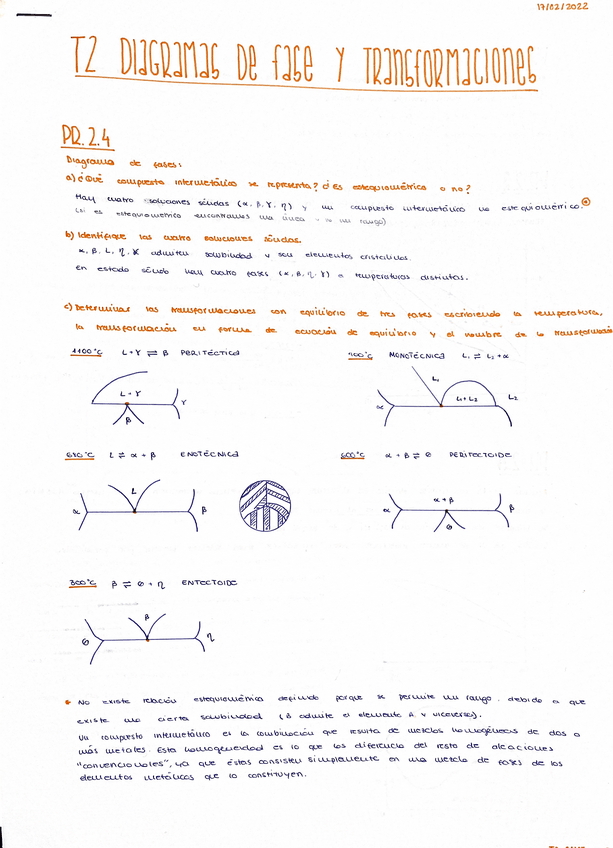 17/02/2022
T2 DIAGRAMAS DE FASE Y TRANSFORMACIONES
PR.2.4
Diagrama de fases:
a) ¿Qué compuesto intermetálico se representa? ¿Es estequiométrica o no?
Hay cuatro soluciones sólidas (α, β, γ, η) y un compuesto intermetálico no estequiométrico.
(si es estequiométrico encontramos una línea y no un rango)
b) Identifique las cuatro soluciones sólidas.
α, β, L, η, γ admiten solubilidad y son elementos cristalinos.
En estado sólido hay cuatro fases (α, β, η, γ) a temperaturas distintas.
c) Determinar las transformaciones con equilibrio de tres fases escribiendo la temperatura,
la transformación en forma de ecuación de equilibrio y el nombre de la transformación
1100°C L+γ ⇌ β PERITÉCTICA
700°C MONOTÉCNICA L₁ ⇌ L₂ + α
L+γ
γ
β
L₁
α
L₁+L₂
L₂
680°C L ⇌ α + β ENOTÉCNICA
600°C α + β ⇌ Θ PERITECTOIDE
L
α
β
α+β
α
β
Θ
300°C β ⇌ Θ + η ENTECTOIDE
β
Θ
η
No existe relación estequiométrica definida porque se permite un rango, debido a que
existe una cierta solubilidad (B admite el elemente A y viceversa).
Un compuesto intermetálico es la combinación que resulta de mezclas homogéneas de dos o
más metales. Esta homogeneidad es lo que los diferencia del resto de aleaciones
"convencionales", ya que éstas consisten simplemente en una mezcla de fases de los
elementos metálicos que lo constituyen.